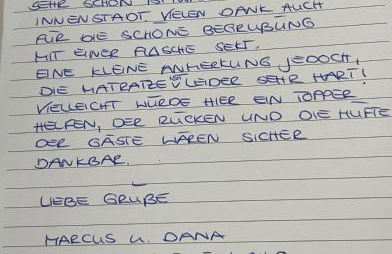 SEHR SCHÖN
INNENSTADT. VIELEN DANK AUCH
FÜR DIE SCHÖNE BEGRÜßUNG
MIT EINER FLASCHE SEKT.
EINE KLEINE ANMERKUNG JEDOCH,
DIE MATRATZE IST LEIDER SEHR HART!
VIELLEICHT WÜRDE HIER EIN TOPPER
HELFEN, DER RÜCKEN UND DIE HÜFTE
DER GÄSTE WÄREN SICHER
DANKBAR.
LIEBE GRÜßE
MARCUS U. DANA